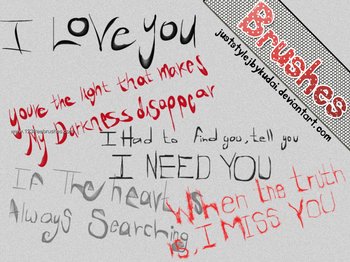 I Love you
Brushes
juststylejbykudai.deviantart.com
you're the light that makes
My Darkness disappear
I Had to find you, tell you
I NEED YOU
If The heart Is
Always Searching
When the truth
is, I MISS YOU